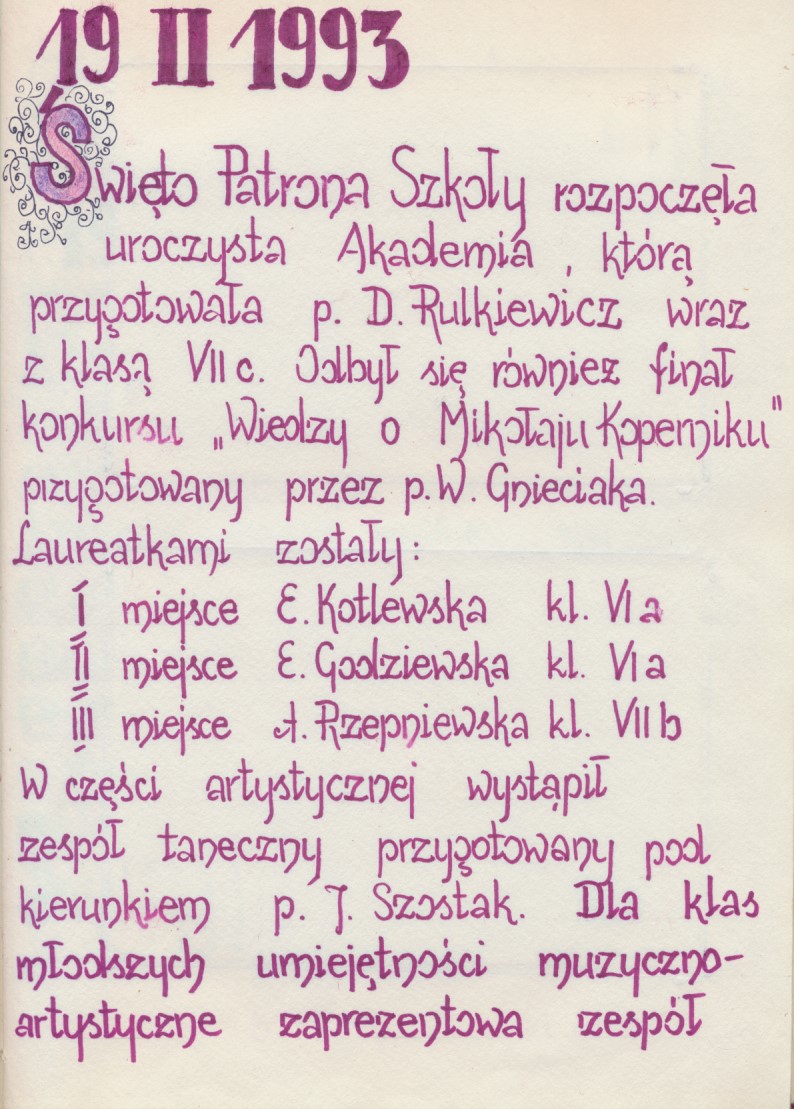 19 II 1993
Święto Patrona Szkoły rozpoczęła
uroczysta Akademia, którą
przygotowała p. D. Rulkiewicz wraz
z klasą VII c. Odbył się równiez finał
konkursu „Wiedzy o Mikołaju Koperniku"
przygotowany przez p. W. Gnieciaka.
Laureatkami zostały:
I miejsce E. Kotlewska kl. VI a
II miejsce E. Godziewska kl. VI a
III miejsce A. Rzepniewska kl. VII b
W części artystycznej wystąpił
zespół taneczny przygotowany pod
kierunkiem p. J. Szostak. Dla klas
młodszych umiejętności muzyczno-
artystyczne zaprezentowa zespół